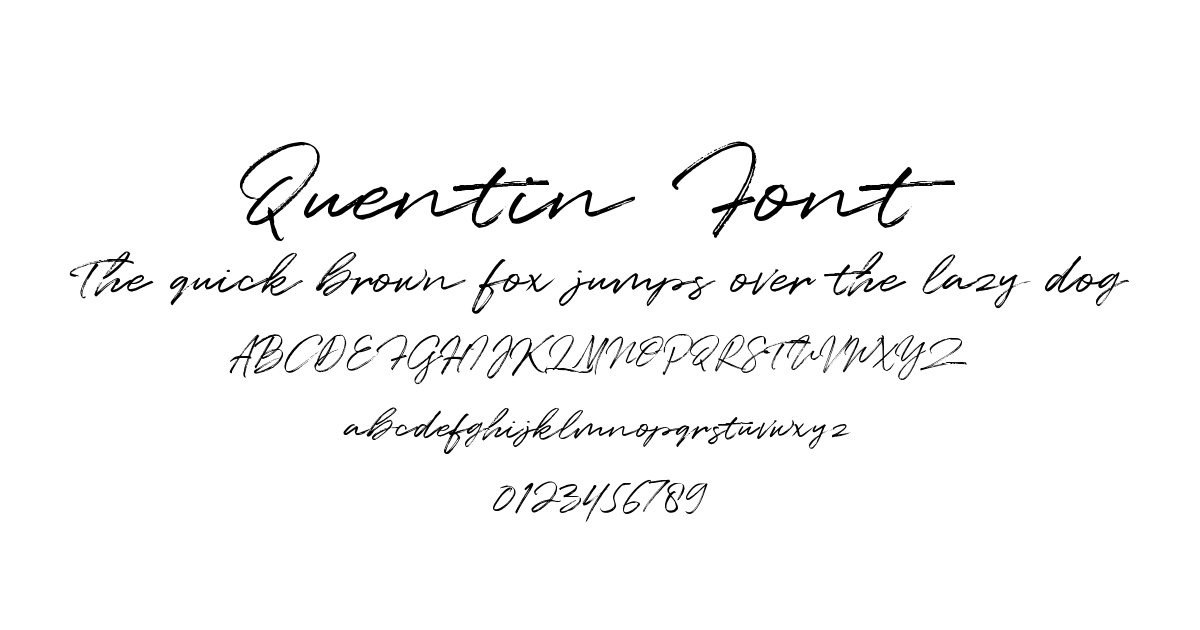 Quentin Font
The quick brown fox jumps over the lazy dog
ABCDEFGHIJKLMNOPQRSTUVWXYZ
abcdefghijklmnopqrstuvwxyz
0123456789